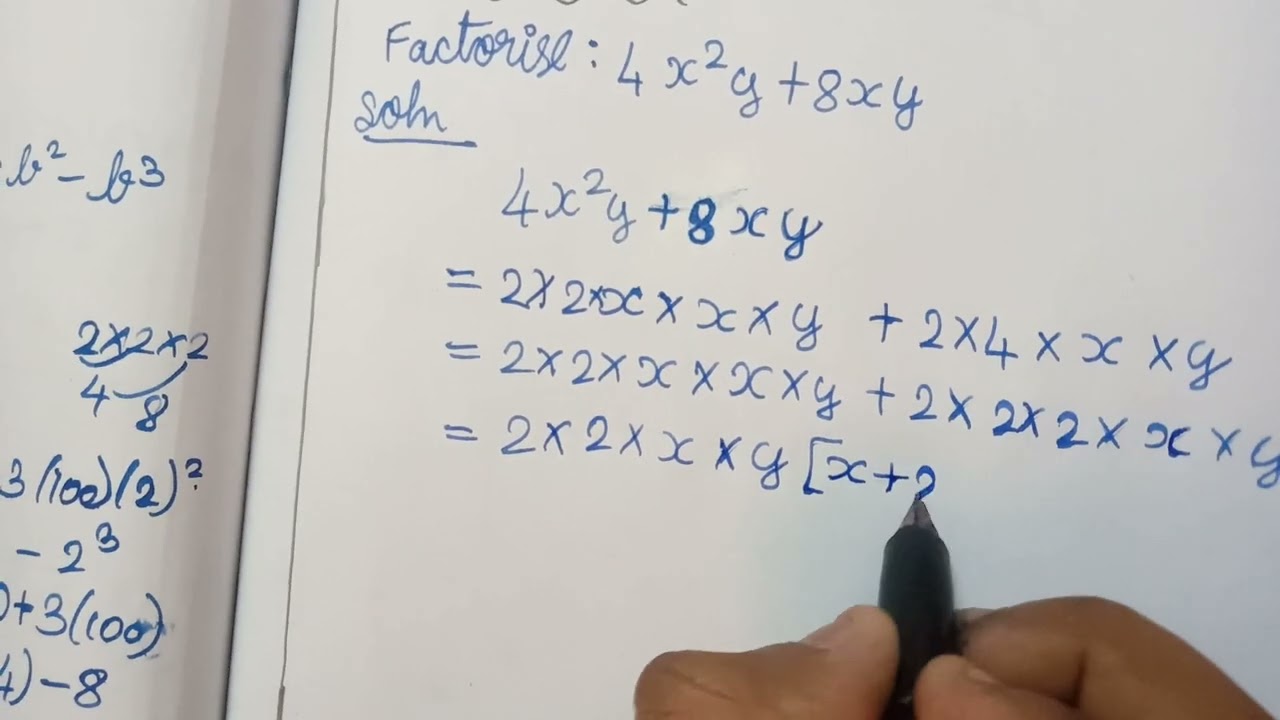 b² - b3
2×2×2
4 8
3(100)(2)²
- 2³
0+3(100)
4) - 8
Factorise : 4x²y + 8xy
Soln
4x²y + 8xy
= 2×2×x×x×y + 2×4×x×y
= 2×2×x×x×y + 2×2×2×x×y
= 2×2×x×y [x+2